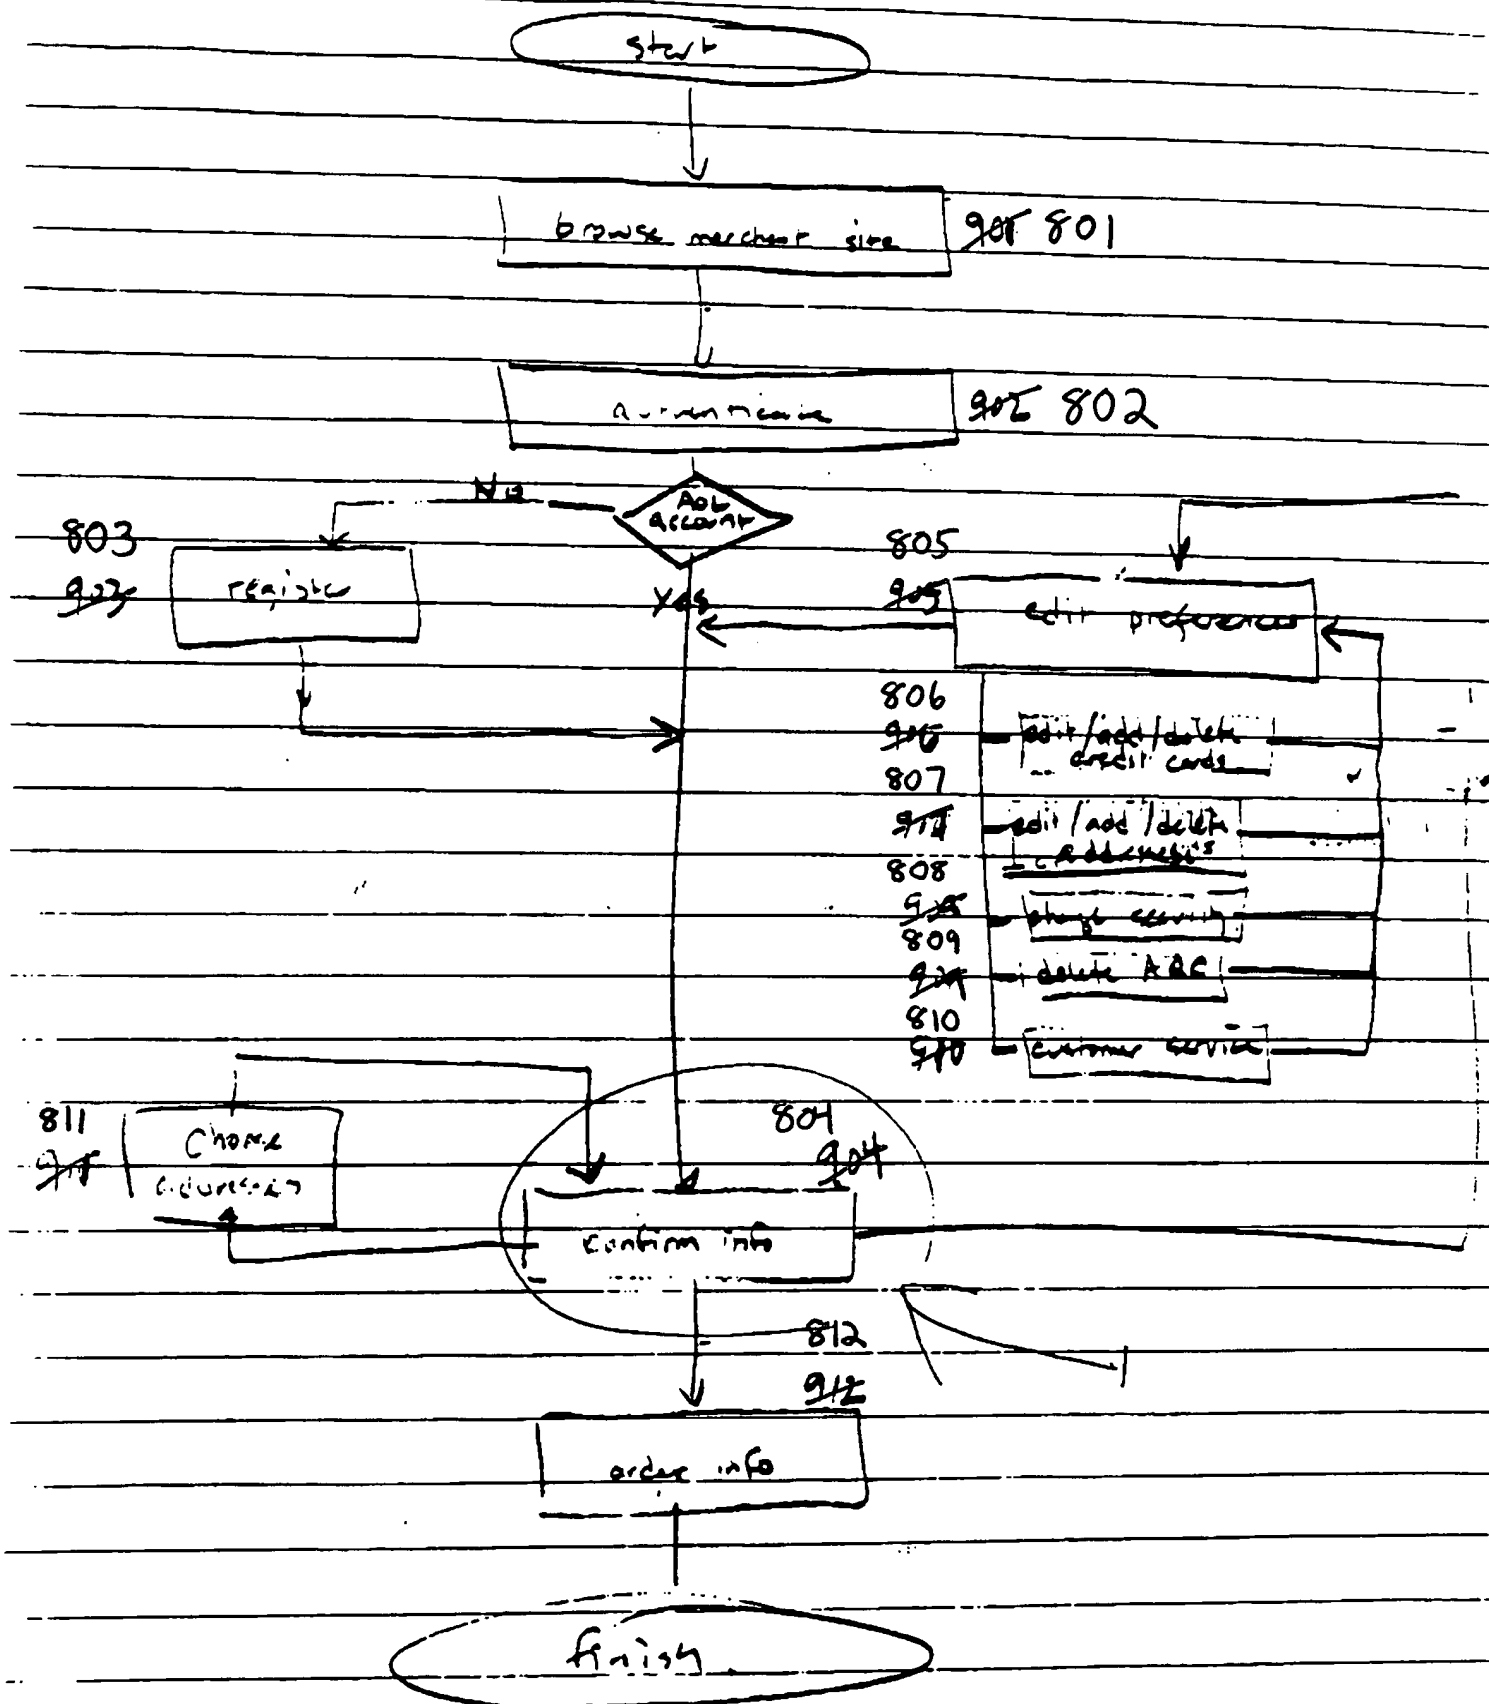 start
browse merchant site
901 801
authenticate
902 802
No
AOL
account
803
903
register
Yes
805
905
edit preferences
806
906
edit/add/delete
credit cards
807
edit/add/delete
addresses
808
security
809
909
delete
810
910
customer service
811
Choose
addresses
804
904
confirm info
812
912
order info
finish